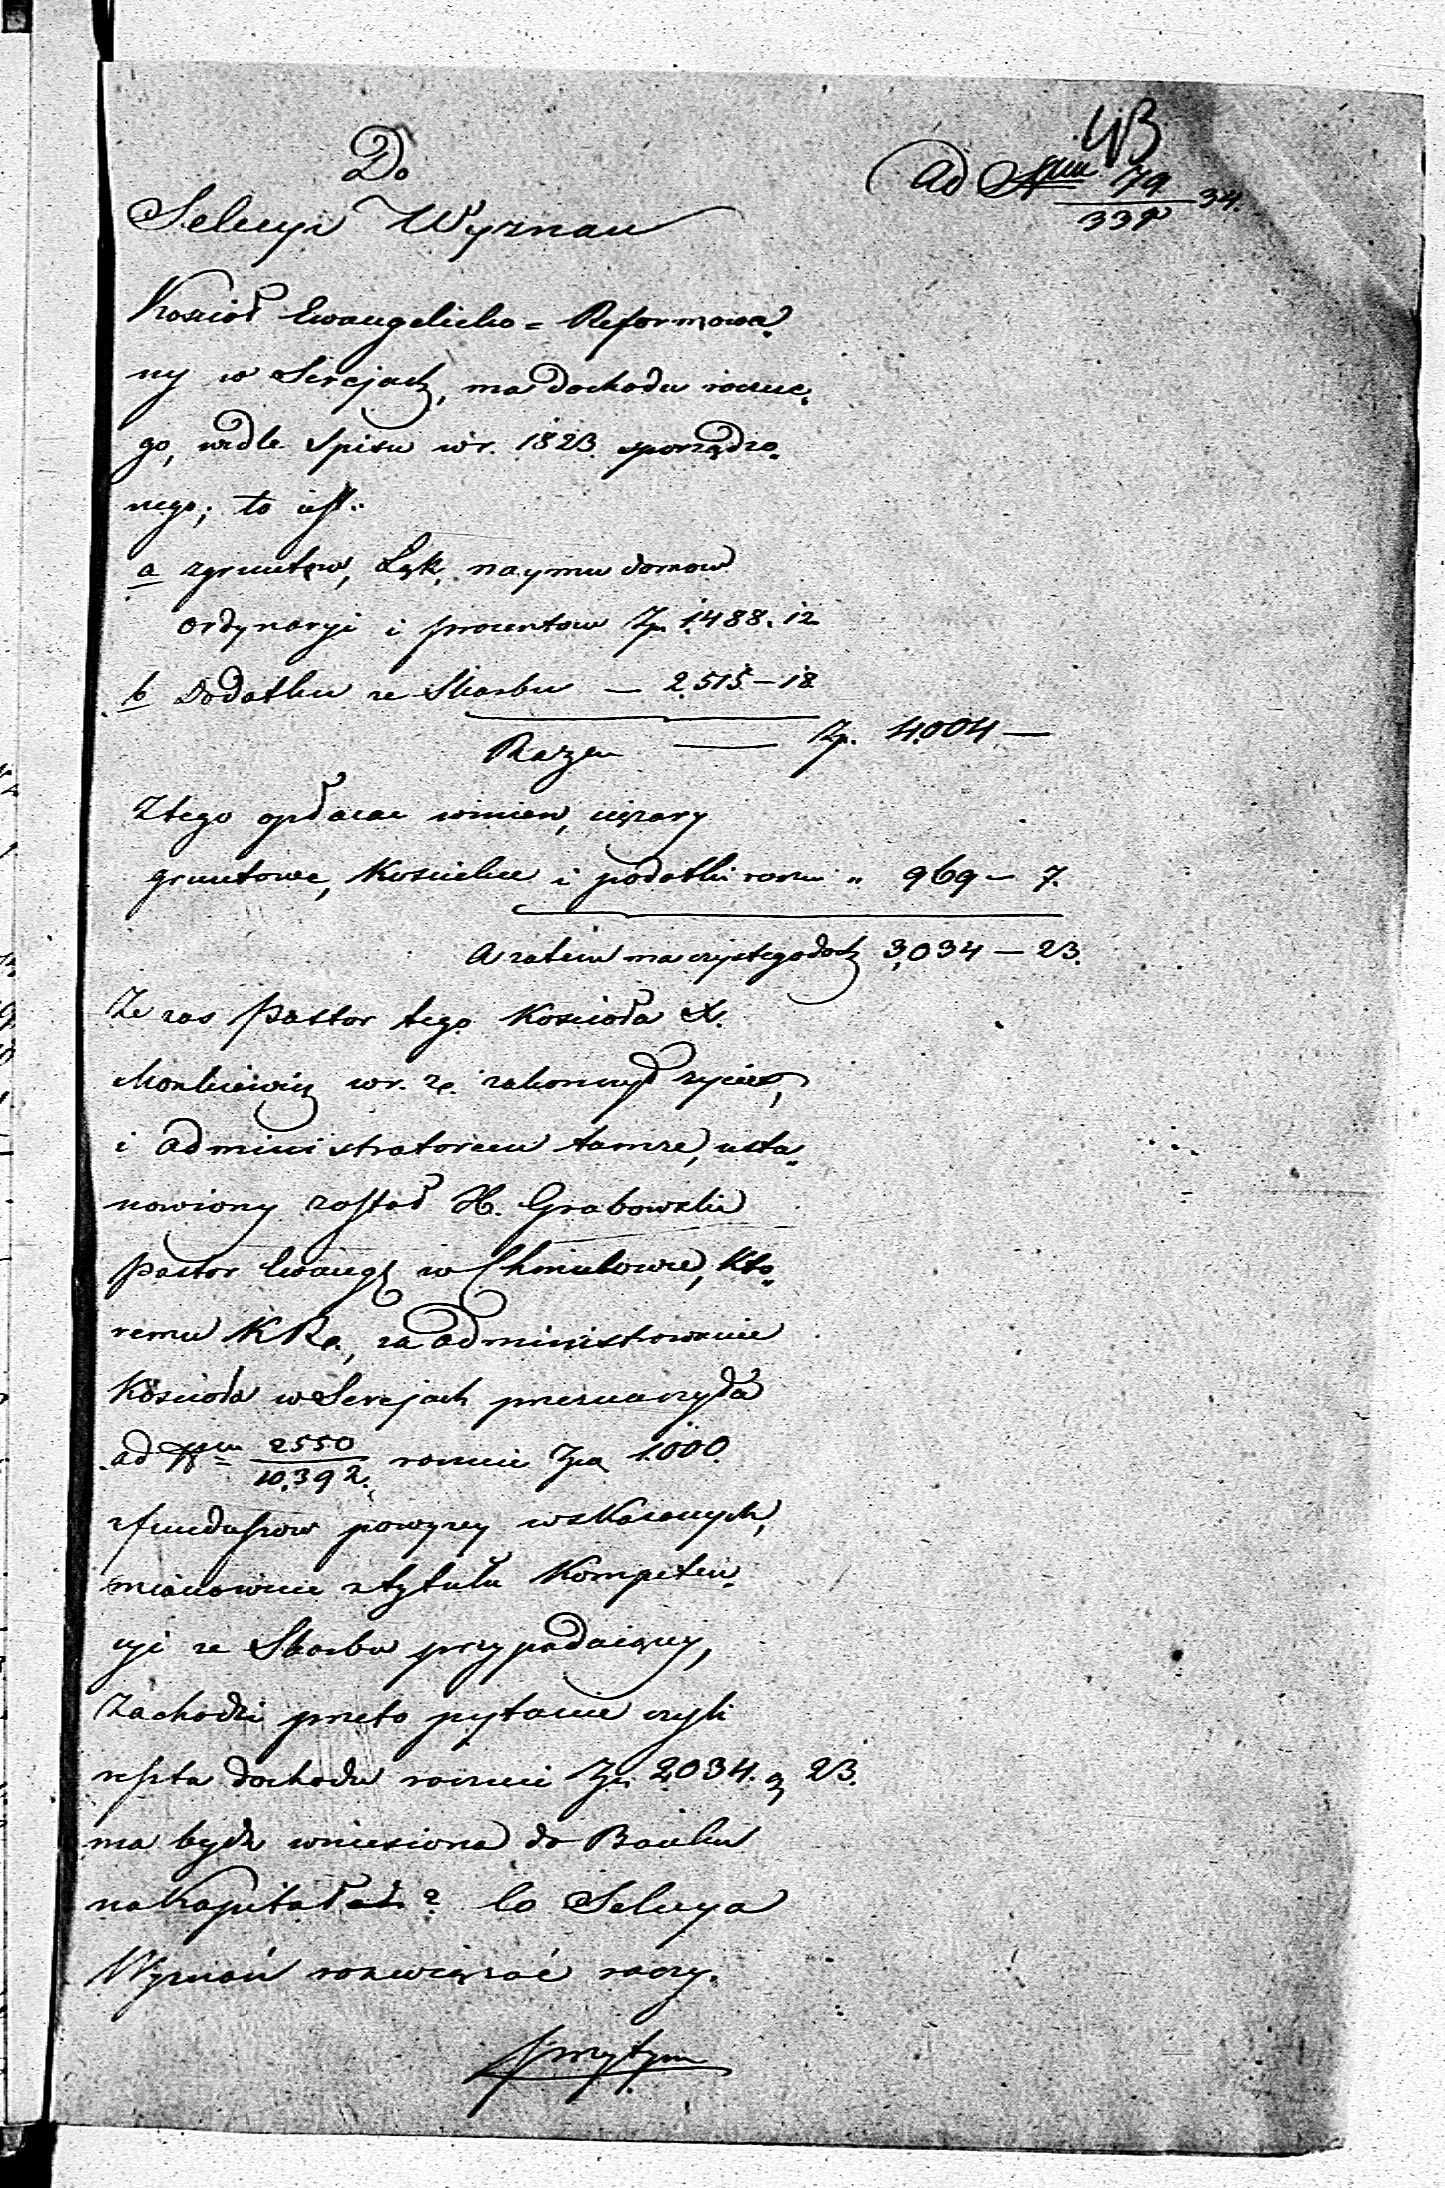 43
Do
ad Nrum 79/339 34.
Sekcyi Wyznań
Kościół Ewangelicko = Reformowa„
ny w Serejach, ma dochodu roczne„
go, wedle Spisu w r. 1823. sporządzo„
nego; to jest:
a zgruntów, Łąk, naymu domow
ordynaryi i procentow Zp. 1488. 12
b Dodatku ze Skarbu — 2.515 — 18
Razem — Zp. 4.004 —
Ztego opłacac winien, ciężary
gruntowe, Kościelne i podatki roczn „ 969 — 7.
A zatem ma czystego doch 3,034 — 23.
Ze zas Pastor tego Kościoła X.
Monkiewicz w r. z. zakonczył zycie,
i administratorem tamze, usta„
nowiony został X. Grabowski
Pastor Ewang w Chmielowie, Któ„
remu KRz., za administrowanie
Kościoła w Serejach przeznaczyła
ad Nrum 2550/10.392. rocznie Zp 1.000.
z funduszow powyzey wskazanych,
mianowicie z tytułu Kompeten„
cyi ze Skarbu przypadaiący,
Zachodzi przeto pytanie czyli
reszta dochodu rocznie Zp. 2.034. g 23.
ma bydz wniesiona do Banku
na Kapitał ? Co Sekcya
Wyznań rozwiązać raczy.